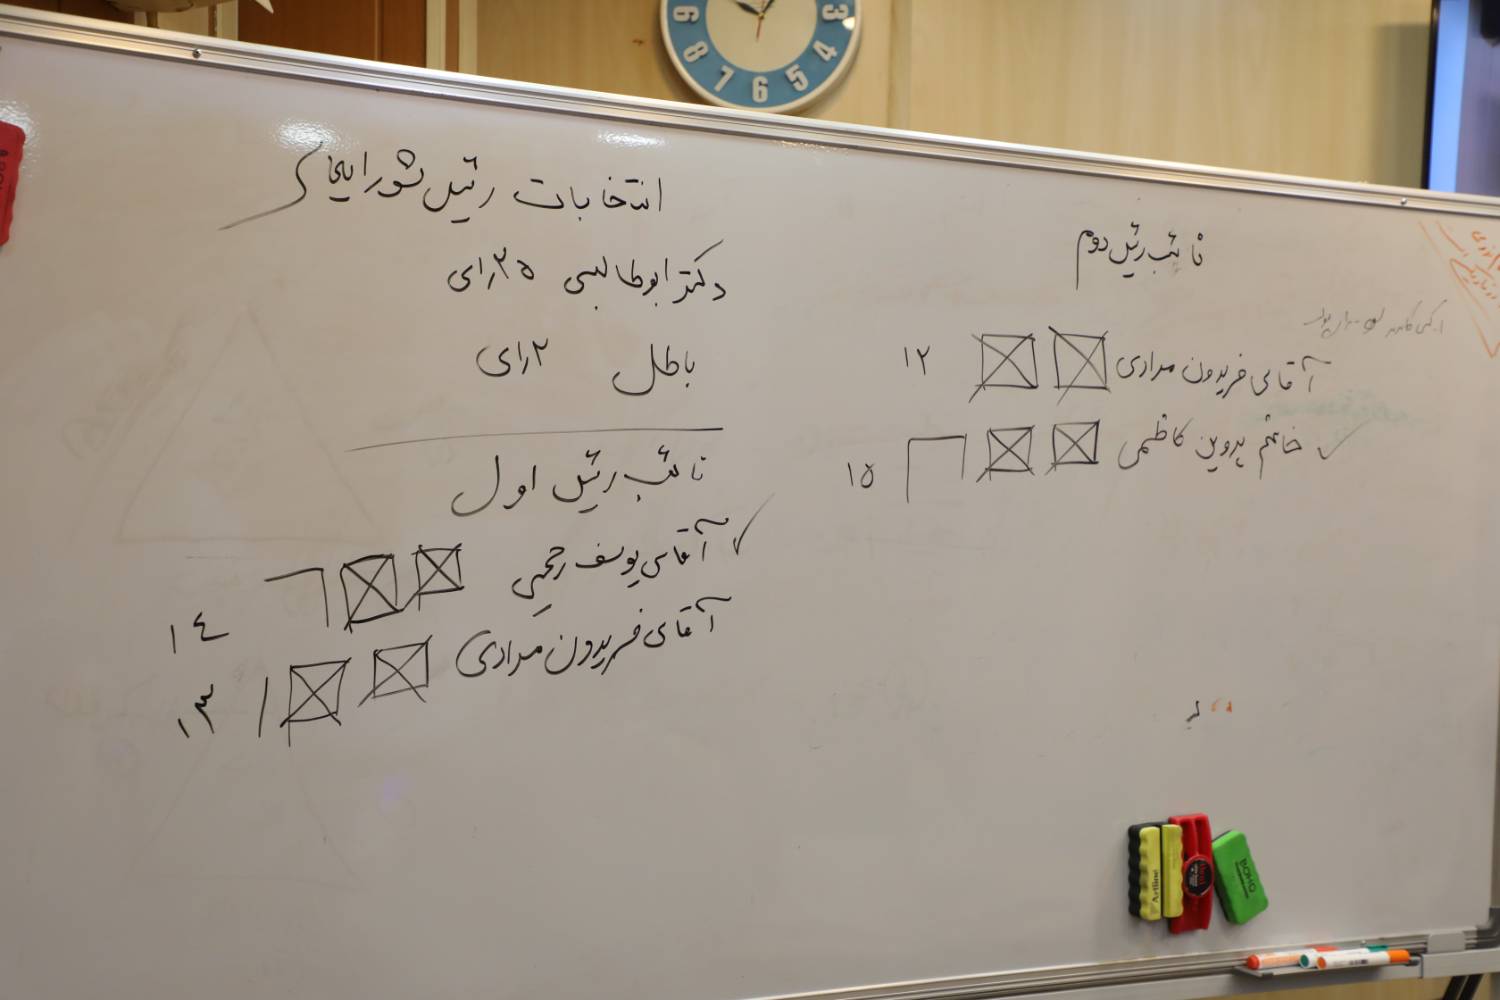 انتخابات رئیس شورایاری
دکتر ابوطالبی ۲۵ رای
باطل ۲ رای
نائب رئیس اول
آقای یوسف رجبی ۱٤
آقای فریدون مرادی ۱۳
نائب رئیس دوم
آقای فریدون مرادی ۱۲
خانم پروین کاظمی ۱۵
3
4
5
6
7
8
9
Artline
BOHO